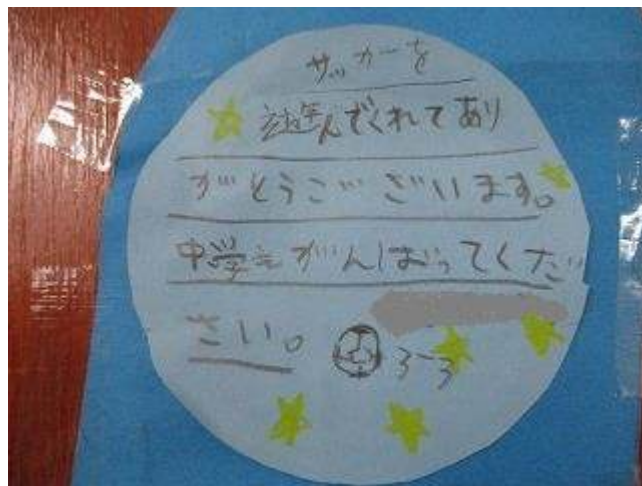 サッカーを
遊んでくれてあり
がとうございます。
中学もがんばってくだ
さい。
3-3